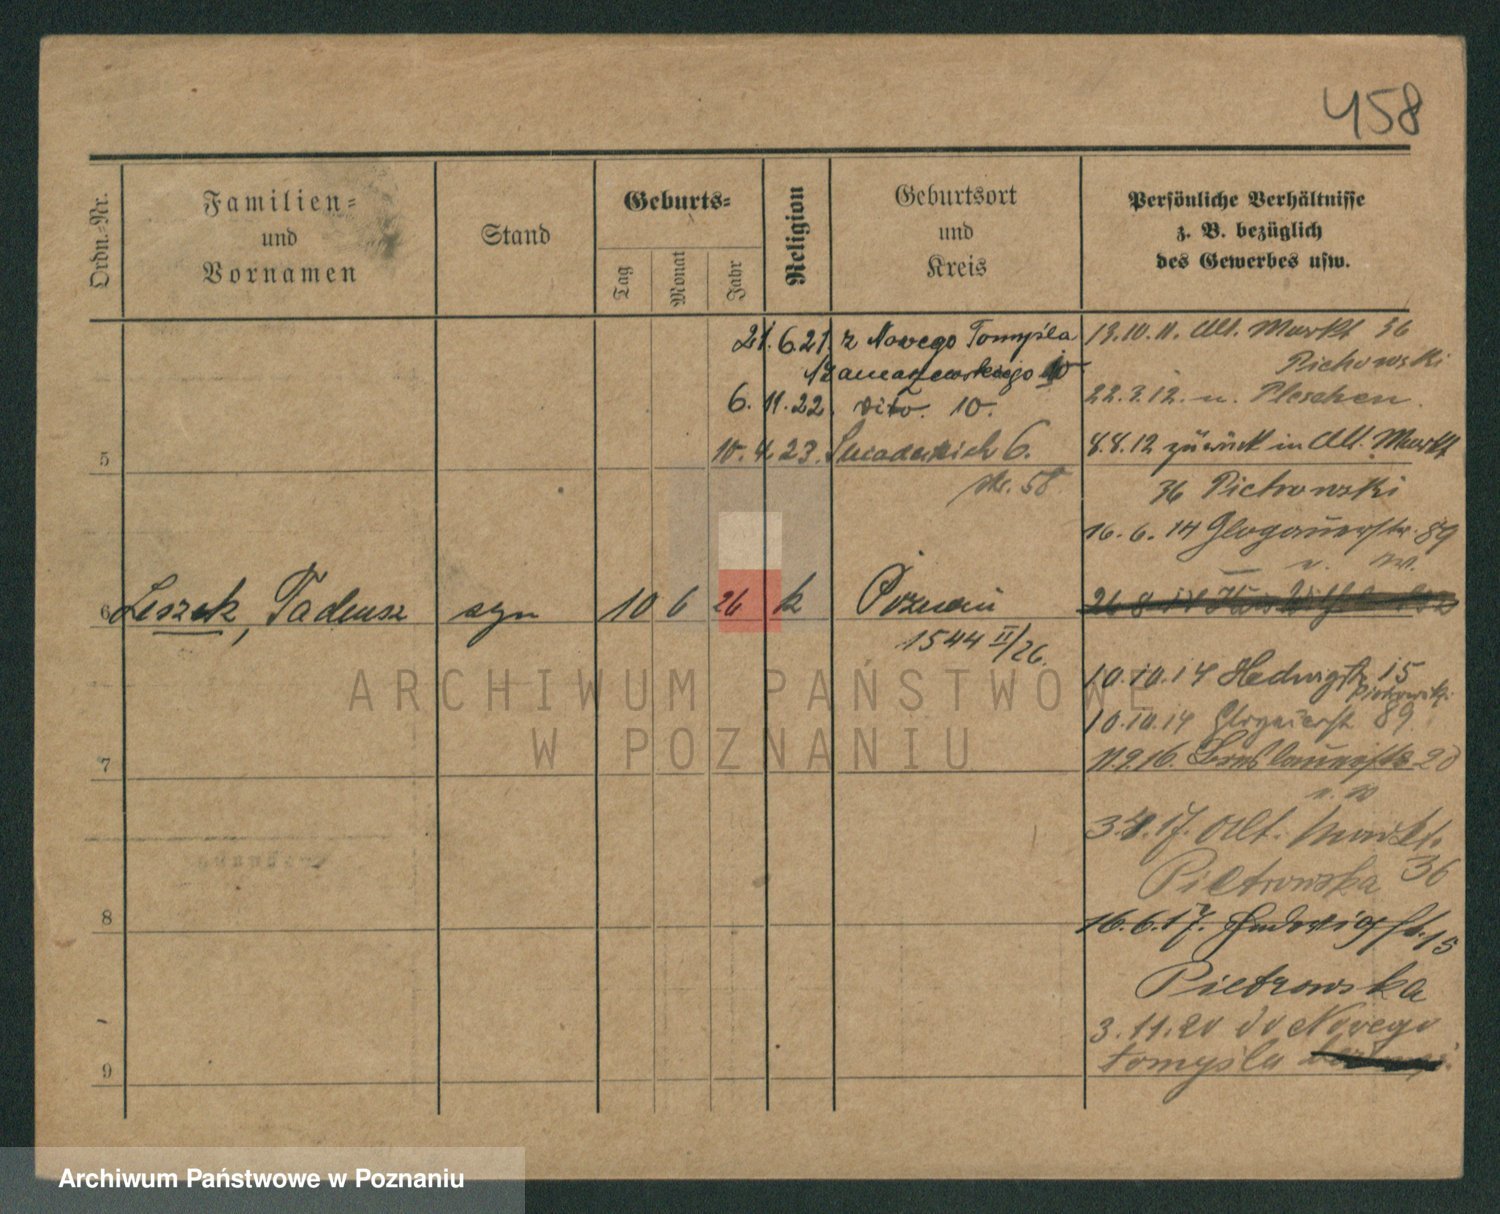 458
Ordn.-Nr.
Familien-
und
Vornamen
Stand
Geburts-
Tag
Monat
Jahr
Religion
Geburtsort
und
Kreis
Persönliche Verhältnisse
z. B. bezüglich
des Gewerbes usw.
21.6.21. z Nowego Tomyśla
10
6. 11. 22. dito. 10.
10. 4. 23. 6.
58
5
6 Leszek, Tadeusz syn 10 6 26 k Poznań
1544 II/26.
7
8
9
13.10.11. Alt. Markt 36
Pietrowski
22.3.12. n. Pleschen.
8.8.12 zurück in Alt. Markt
36 Pietrowski
16. 6. 14 Glogauerstr. 89
10.10.14 Hedwigstr 15
Pietrowski
10.10.14 Glogauerst 89
11.9.16. 20
3.4.17. Alt. Markt.
Pietrowska 36
16.6.17. Hedwigst. 15
Pietrowska
3. 11. 20 do Nowego
Tomyśla
ARCHIWUM PAŃSTWOWE
W POZNANIU
Archiwum Państwowe w Poznaniu